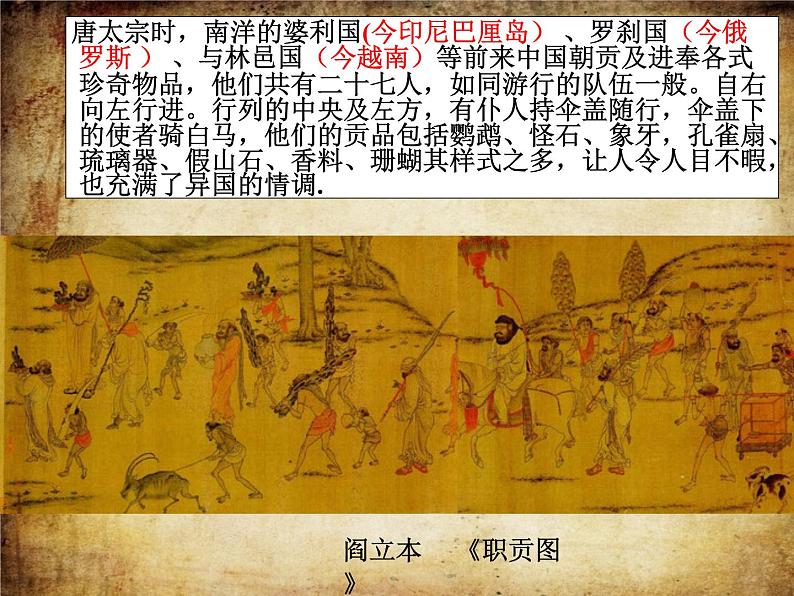 唐太宗时，南洋的婆利国(今印尼巴厘岛）、罗刹国（今俄
罗斯 ）、与林邑国（今越南）等前来中国朝贡及进奉各式
珍奇物品，他们共有二十七人，如同游行的队伍一般。自右
向左行进。行列的中央及左方，有仆人持伞盖随行，伞盖下
的使者骑白马，他们的贡品包括鹦鹉、怪石、象牙，孔雀扇、
琉璃器、假山石、香料、珊蝴其样式之多，让人令人目不暇，
也充满了异国的情调.
阎立本 《职贡图
》